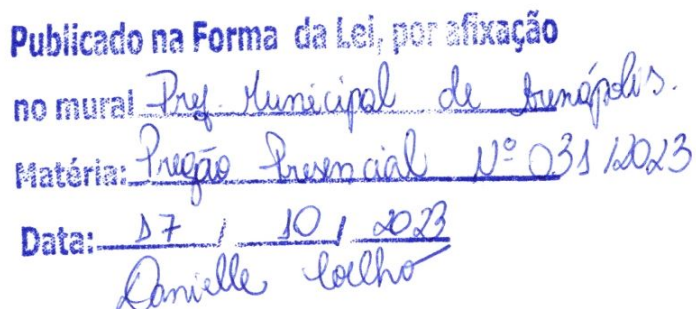 Publicado na Forma da Lei, por afixação
no mural Pref. Municipal de Arenápolis.
Matéria: Pregão Presencial Nº 031/2023
Data: 17 / 10 / 2023
Danielle Coelho